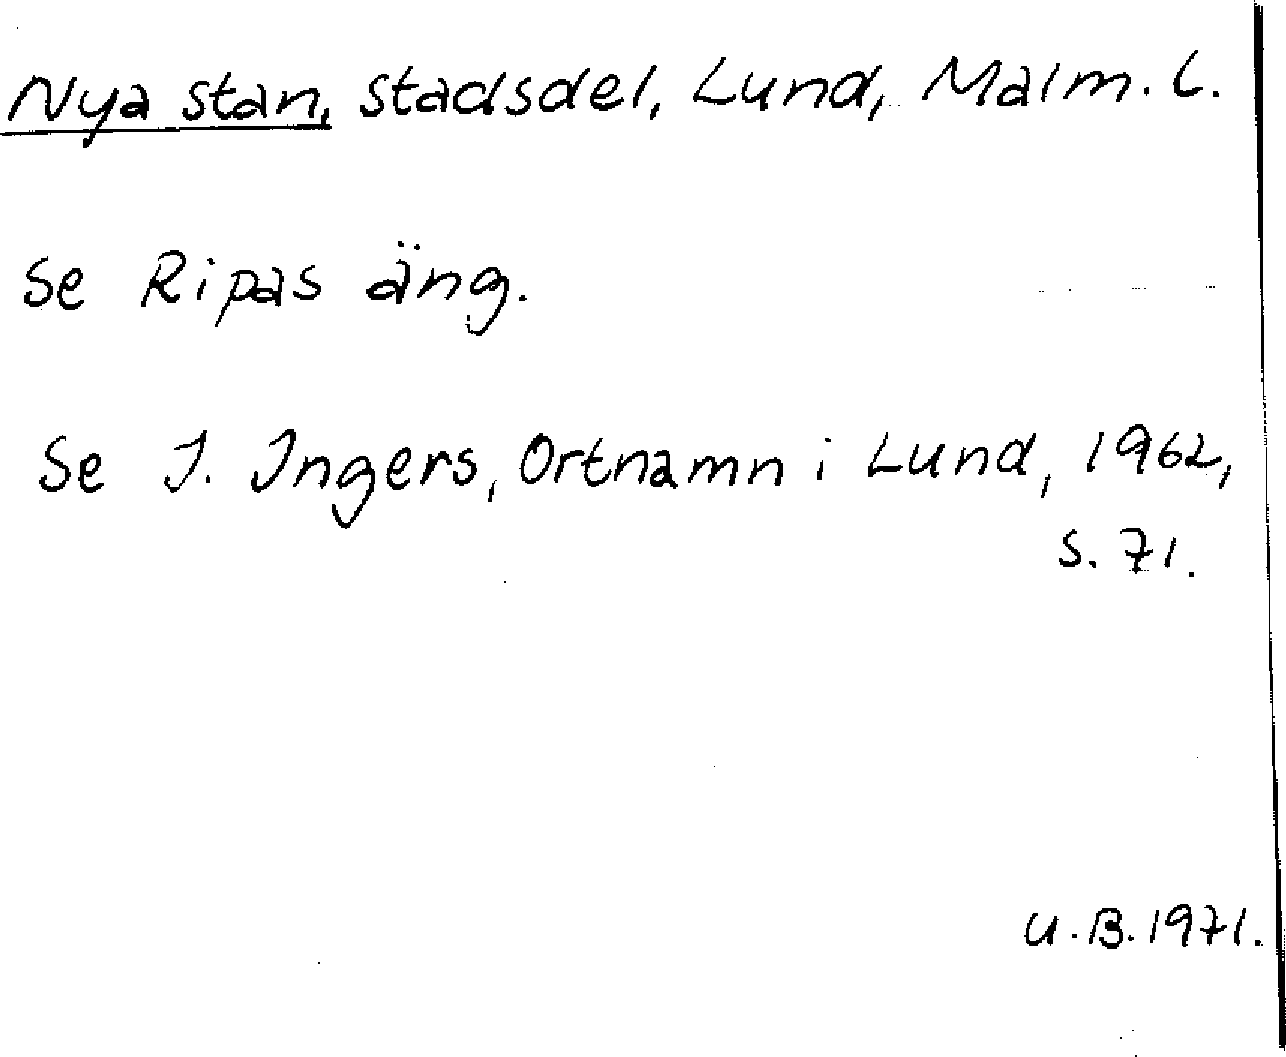 Nya stan, stadsdel, Lund, Malm. L.
Se Ripas äng.
Se I. Ingers, Ortnamn i Lund, 1962,
s. 71.
U.B. 1971.